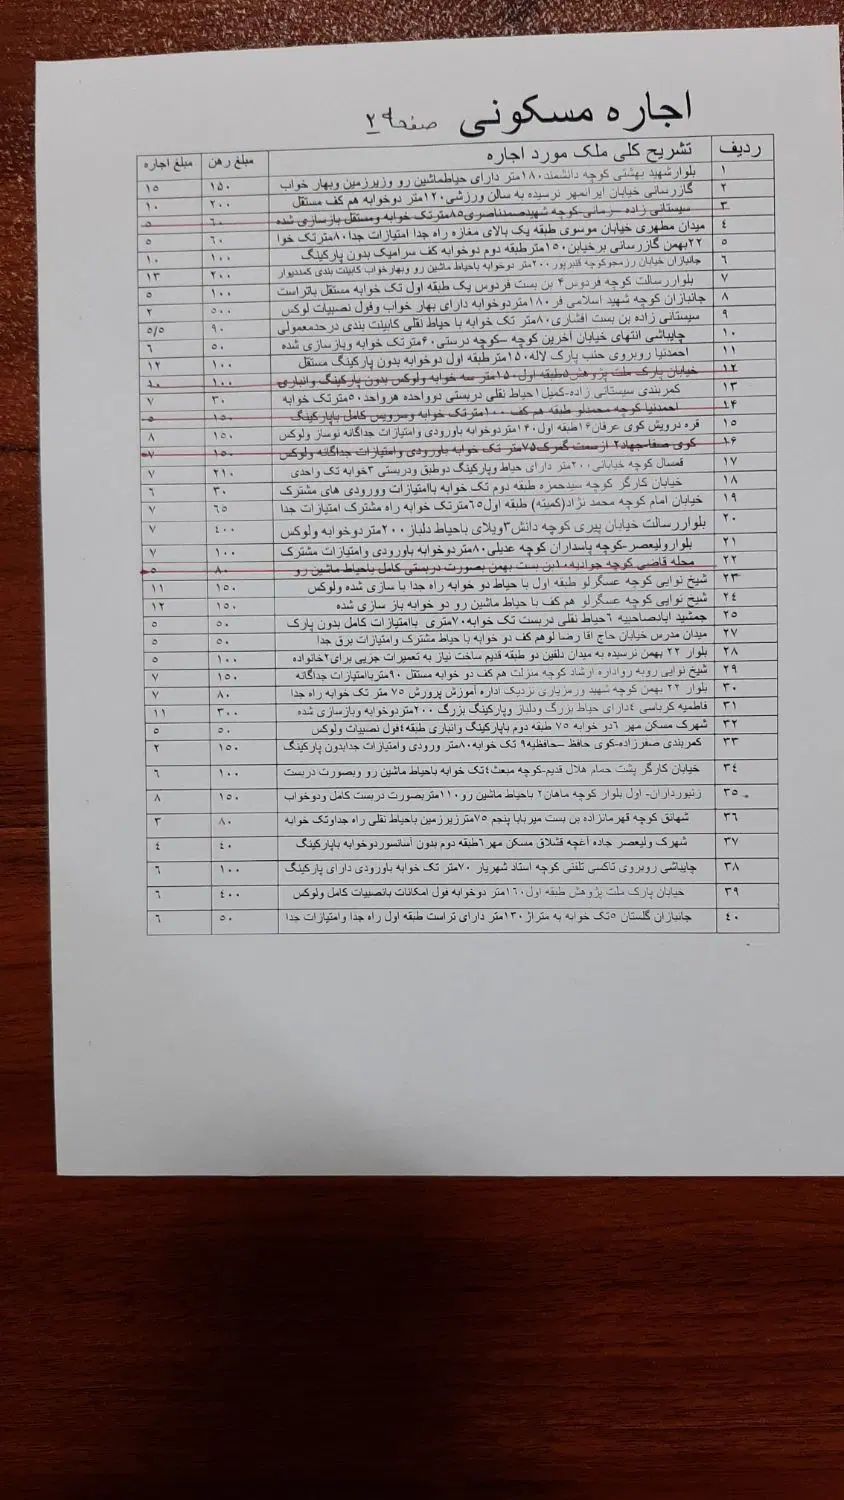 اجاره مسکونی صفحه ۲
ردیف تشریح کلی ملک مورد اجاره مبلغ رهن مبلغ اجاره
۱ بلوارشهید بهشتی کوچه دانشمند۱۸۰متر دارای حیاط‌ماشین رو وزیرزمین وبهار خواب ۱۵۰ ۱۵
۲ گازرسانی خیابان ایرانمهر نرسیده به سالن ورزشی۱۲۰متر دوخوابه هم کف مستقل ۲۰۰ ۱۰
۳ سیستانی زاده –رمانی-کوچه شهیدصمدناصری۸۵مترتک خوابه ومستقل بازسازی شده ۶۰ ۵
۴ میدان مطهری خیابان موسوی طبقه یک بالای مغازه راه جدا امتیازات جدا۸۰مترتک خوا ۶۰ ۵
۵ ۲۲بهمن گازرسانی برخیابن۱۵۰مترطبقه دوم دوخوابه کف سرامیک بدون پارکینگ ۱۰۰ ۱۰
۶ جانبازان خیابان رزمجوکوچه قنبرپور۲۰۰متر دوخوابه باحیاط ماشین رو وبهارخواب کابینت بندی کمددیوار ۲۰۰ ۱۳
۷ بلواررسالت کوچه فردوس۴ بن بست فردوس یک طبقه اول تک خوابه مستقل باتراست ۱۰۰ ۵
۸ جانبازان کوچه شهید اسلامی فر۱۸۰متردوخوابه دارای بهار خواب وفول نصبیات لوکس ۵۰۰ ۲
۹ سیستانی زاده بن بست افشاری۸۰متر تک خوابه با حیاط نقلی کابینت بندی درحدمعمولی ۹۰ ۵/۵
۱۰ چایباشی انتهای خیابان آخرین کوچه –کوچه درستی۶۰مترتک خوابه وبازسازی شده ۵۰ ۶
۱۱ احمدنیا روبروی جنب پارک لاله۱۵۰مترطبقه اول دوخوابه بدون پارکینگ مستقل ۱۰۰ ۱۲
۱۲ خیابان پارک ملت پژوهش۵طبقه اول۱۵۰متر سه خوابه ولوکس بدون پارکینگ وانباری ۱۰۰ ۱۰
۱۳ کمربندی سیستانی زاده-کمیل۱حیاط نقلی دربستی دوواحده هرواحد۵۰مترتک خوابه ۳۰ ۷
۱۴ احمدنیا کوچه محمدلو طبقه هم کف ۱۰۰مترتک خوابه وسرویس کامل باپارکینگ ۱۵۰ ۵
۱۵ قره درویش کوی عرفان۱۶طبقه اول۱۴۰متردوخوابه باورودی وامتیازات جداگانه نوساز ولوکس ۱۵۰ ۸
۱۶ کوی صفا-جهاد۲ ازسمت گمرک۷۵متر تک خوابه باورودی وامتیازات جداگانه ولوکس ۱۵۰ ۷
۱۷ قمسال کوچه خیابانی۲۰۰متر دارای حیاط وپارکینگ دوطبق ودربستی ۳خوابه تک واحدی ۲۱۰ ۷
۱۸ خیابان کارگر کوچه سیدحمزه طبقه دوم تک خوابه باامتیازات وورودی های مشترک ۳۰ ۶
۱۹ خیابان امام کوچه محمد نژاد(کمیته) طبقه اول۶۵مترتک خوابه راه مشترک امتیازات جدا ۶۵ ۷
۲۰ بلواررسالت خیابان پیری کوچه دانش۳ویلای باحیاط دلباز۲۰۰متردوخوابه ولوکس ۴۰۰ ۷
۲۱ بلوارولیعصر-کوچه پاسداران کوچه عدیلی۸۰متردوخوابه باورودی وامتیازات مشترک ۱۰۰ ۷
۲۲ محله قاضی کوچه جوادیه۱۰بن بست بهمن بصورت دربستی کامل باحیاط ماشین رو ۸۰ ۵
۲۳ شیخ نوایی کوچه عسگرلو طبقه اول با حیاط دو خوابه راه جدا با سازی شده ولوکس ۱۵۰ ۱۱
۲۴ شیخ نوایی کوچه عسگرلو هم کف با حیاط ماشین رو دو خوابه باز سازی شده ۱۵۰ ۱۲
۲۵ جمشید ابادصاحبیه ۶حیاط نقلی دربست تک خوابه۷۰متری باامتیازات کامل بدون پارک ۵۰ ۵
۲۷ میدان مدرس خیابان حاج اقا رضا لوهم کف دو خوابه با حیاط مشترک وامتیازات برق جدا ۵۰ ۵
۲۸ بلوار ۲۲ بهمن نرسیده به میدان دلفین دو طبقه قدیم ساخت نیاز به تعمیرات جزیی برای۲خانواده ۱۰۰ ۵
۲۹ شیخ نوایی روبه رواداره ارشاد کوچه منزلت هم کف دو خوابه مستقل ۹۰مترباامتیازات جداگانه ۱۵۰ ۷
۳۰ بلوار ۲۲ بهمن کوچه شهید ورمزیاری نزدیک اداره آموزش پرورش ۷۵ متر تک خوابه راه جدا ۸۰ ۷
۳۱ فاطمیه کرباسی ۴دارای حیاط بزرگ ودلباز وپارکینگ بزرگ ۲۰۰متردوخوابه وبازسازی شده ۳۰۰ ۱۱
۳۲ شهرک مسکن مهر ۶دو خوابه ۷۵ طبقه دوم باپارکینگ وانباری طبقه۴فول نصبیات ولوکس ۵۰ ۵
۳۳ کمربندی صفرزاده-کوی حافظ –حافظیه۹ تک خوابه۸۰متر ورودی وامتیازات جدابدون پارکینگ ۱۵۰ ۲
۳۴ خیابان کارگر پشت حمام هلال قدیم-کوچه مبعث۴تک خوابه باحیاط ماشین رو وبصورت دربست ۱۰۰ ۶
۳۵ زنبورداران- اول بلوار کوچه ماهان۲ باحیاط ماشین رو۱۱۰متربصورت دربست کامل ودوخواب ۱۵۰ ۸
۳۶ شهانق کوچه قهرمانزاده بن بست میربابا پنجم ۷۵مترزیرزمین باحیاط نقلی راه جداوتک خوابه ۸۰ ۳
۳۷ شهرک ولیعصر جاده آغچه قشلاق مسکن مهر۶طبقه دوم بدون آسانسوردوخوابه باپارکینگ ۴۰ ۴
۳۸ چایباشی روبروی تاکسی تلفنی کوچه استاد شهریار ۷۰متر تک خوابه باورودی دارای پارکینگ ۱۰۰ ۶
۳۹ خیابان پارک ملت پژوهش طبقه اول۱۶۰متر دوخوابه فول امکانات بانصبیات کامل ولوکس ۴۰۰ ۶
۴۰ جانبازان گلستان ۵تک خوابه به متراژ۱۳۰متر دارای تراست طبقه اول راه جدا وامتیازات جدا ۵۰ ۶